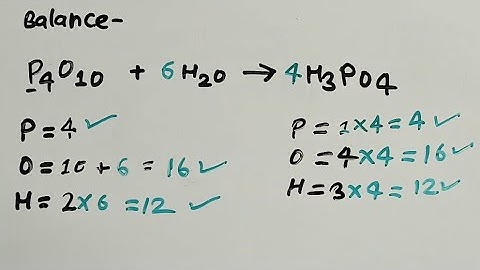 Balance-
P4O10 + 6H2O → 4H3PO4
P = 4 ✓
O = 10 + 6 = 16 ✓
H = 2×6 = 12 ✓
P = 1×4 = 4 ✓
O = 4×4 = 16 ✓
H = 3×4 = 12 ✓